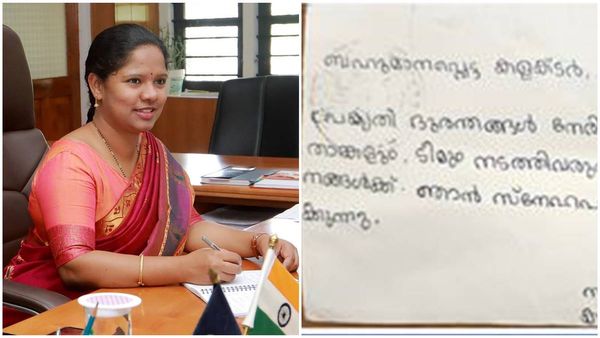 ബഹുമാനപ്പെട്ട കളക്ടർ,
പ്രകൃതി ദുരന്തങ്ങൾ നേരി
താങ്കളും, ടീമും നടത്തിവരു
നങ്ങൾക്ക് ഞാൻ
ക്കുന്നു.